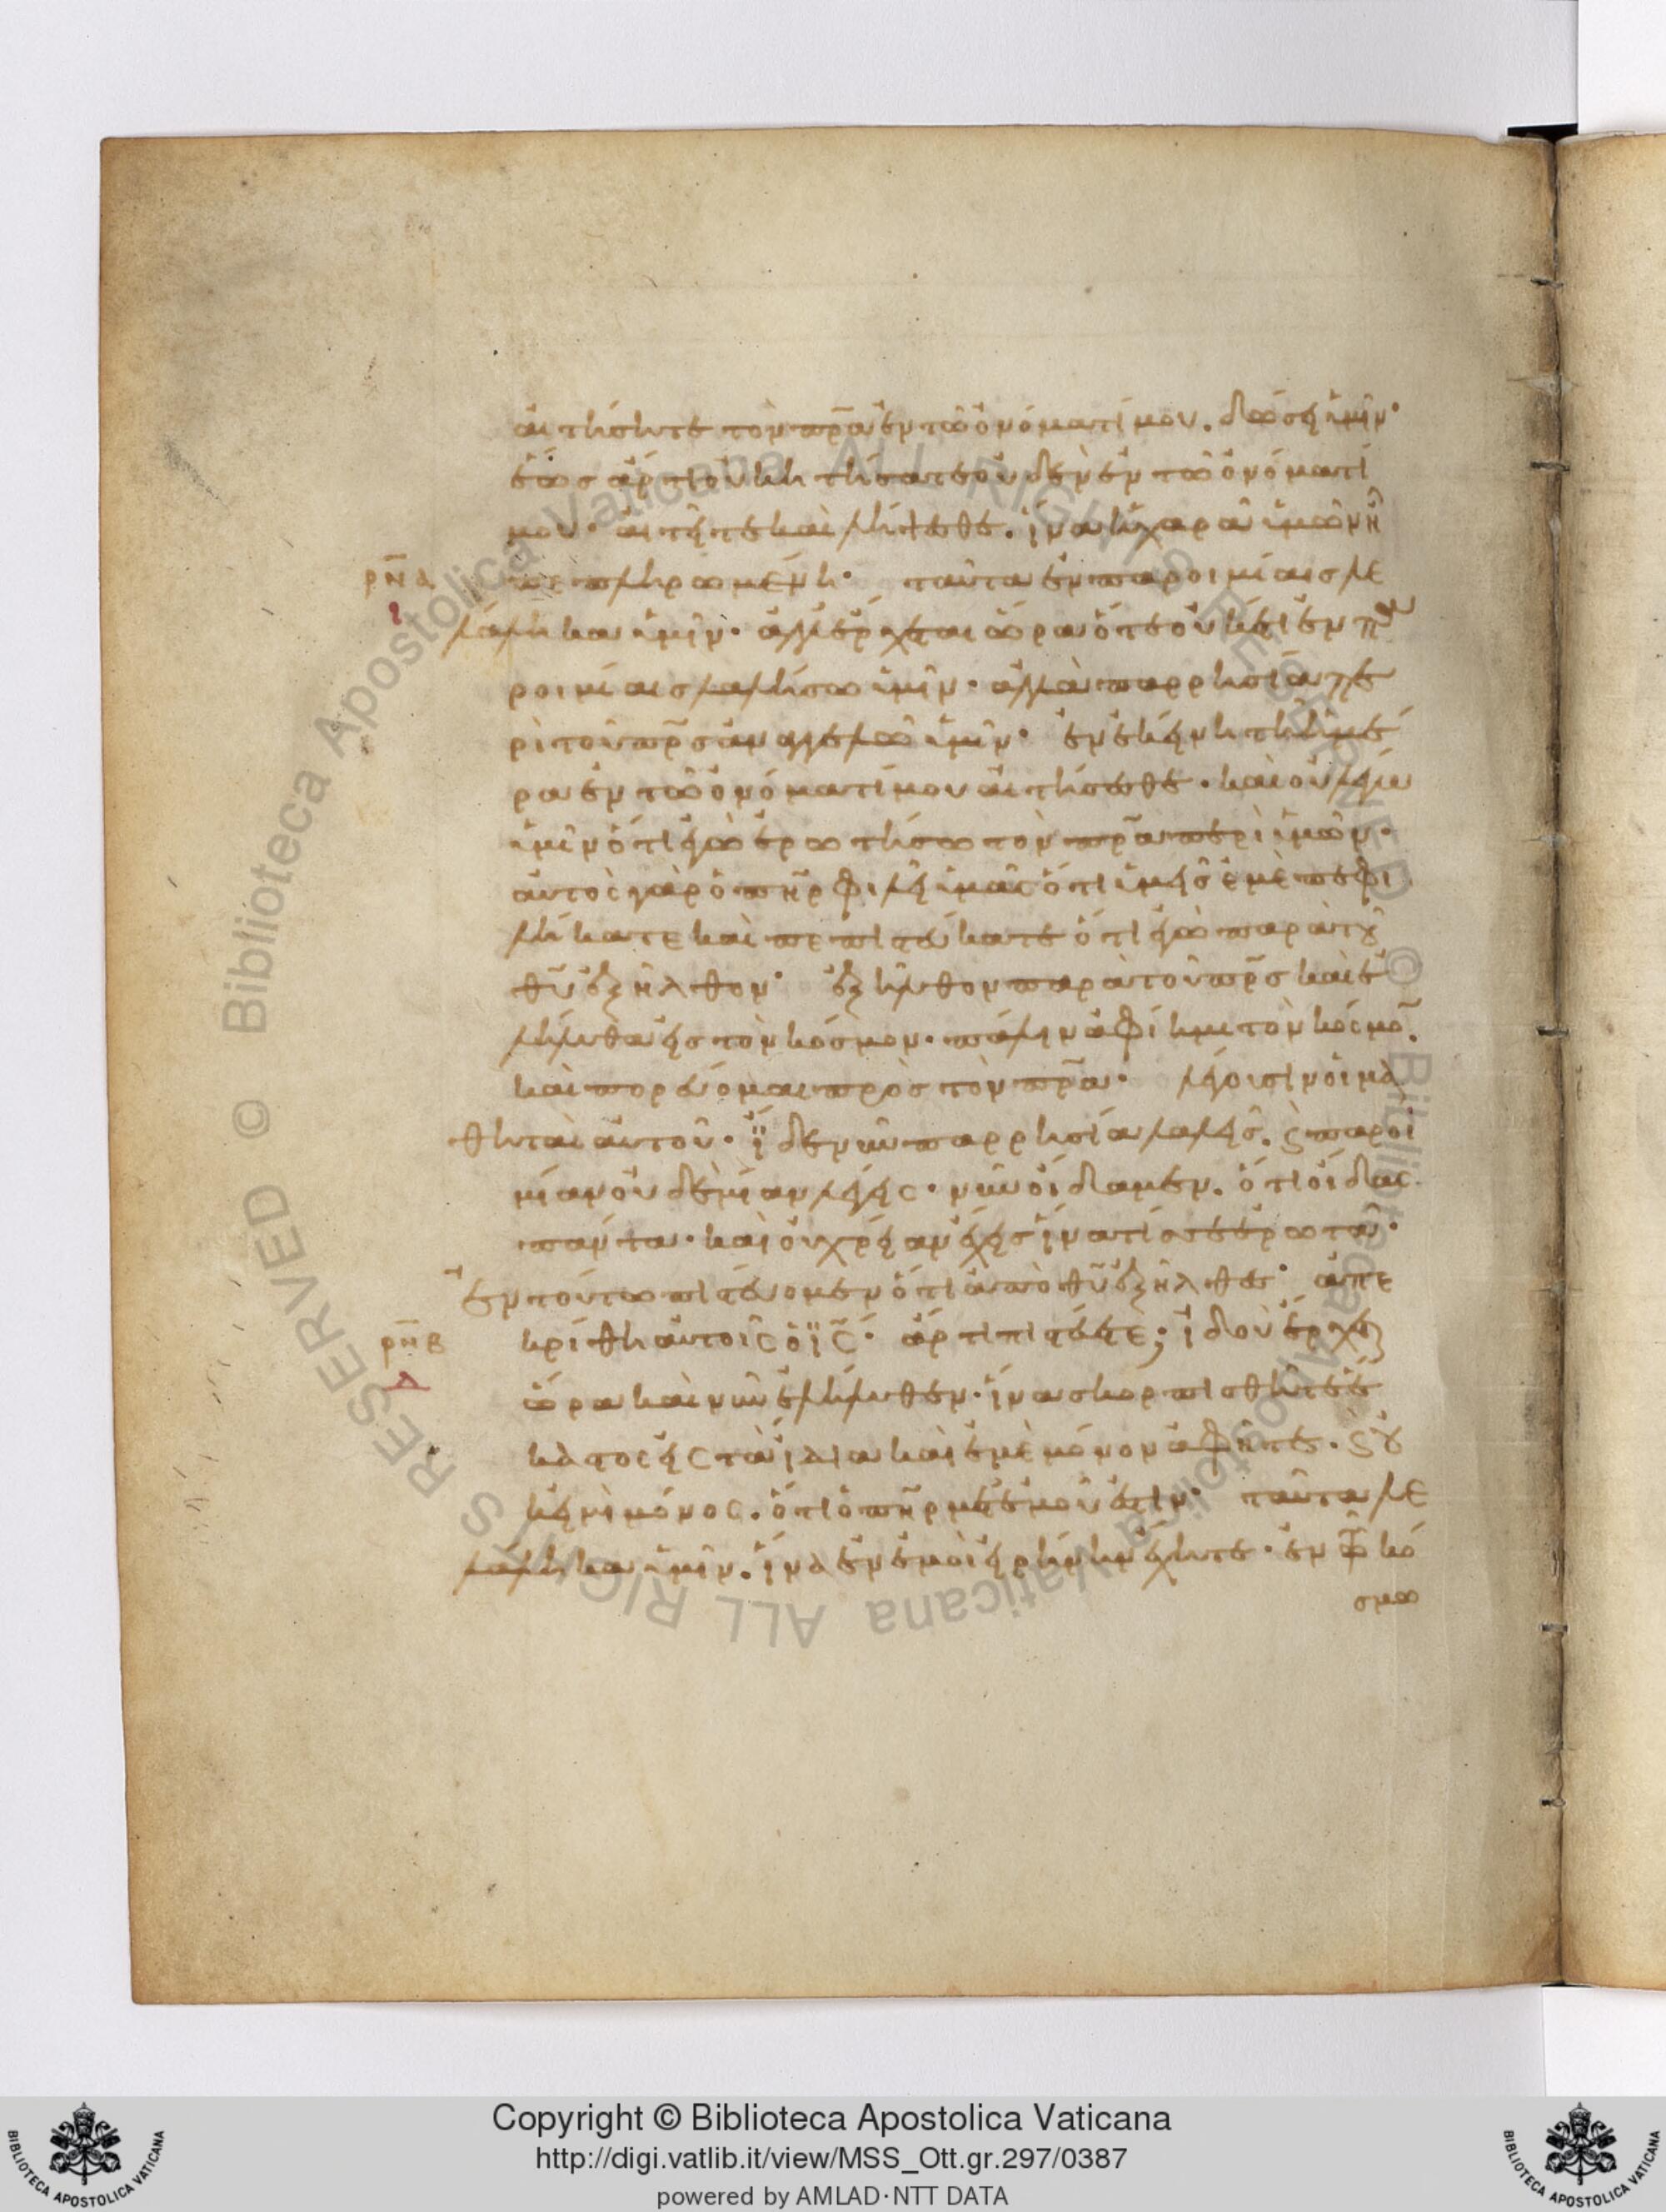 αἰτήσητε τὸν πρ̅α ἐν τῶ ὀνόματί μου. δώσει ὑμῖν·
ἕως ἄρτι οὐκ ἠτήσατε οὐδὲν ἐν τῶ ὀνόματί
μου· αἰτεῖτε καὶ λήψεσθε. ἵνα ἡ χαρὰ ὑμῶν ἦ
πεπληρωμένη· ταῦτα ἐν παροιμίαις λε
λάληκα ὑμῖν· ἀλλ' ἔρχεται ὥρα ὅτε οὐκέτι ἐν πα
ροιμίαις λαλήσω ὑμῖν· ἀλλὰ παρρησία πε
ρὶ τοῦ πρ̅σ ἀναγγελῶ ὑμῖν· ἐν ἐκείνη τῆ ἡμέ
ρα ἐν τῶ ὀνόματί μου αἰτήσεσθε· καὶ οὐ λέγω
ὑμῖν ὅτι ἐγὼ ἐρωτήσω τὸν πρ̅α περὶ ὑμῶν·
αὐτὸς γὰρ ὁ πη̅ρ φιλεῖ ὑμᾶς ὅτι ὑμεῖς ἐμὲ πεφι
λήκατε καὶ πεπιστεύκατε ὅτι ἐγὼ παρὰ τοῦ
θυ̅ ἐξῆλθον· ἐξῆλθον παρὰ τοῦ πρ̅σ καὶ ἐ
λήλυθα εἰς τὸν κόσμον· πάλιν ἀφίημι τὸν κόσμο̅.
καὶ πορεύομαι πρὸς τὸν πρ̅α· λέγουσιν οἱ μα
θηταὶ αὐτοῦ· ἴδε νῦν παρρησία λαλεῖς. ϛ παροι
μίαν οὐδεμίαν λέγεις· νῦν οἴδαμεν. ὅτι οἶδας
πάντα· καὶ οὐ χρείαν ἔχεις ἵνα τίς σε ἐρωτᾶ·
ἐν τούτω πιστεύομεν ὅτι ἀπὸ θυ̅ ἐξῆλθες· ἀπε
ρν̅β κρίθη αὐτοῖς ὁ ι̅ς̅· ἄρτι πιστεύετε; ἰδοὺ ἔρχεται
ὥρα καὶ νῦν ἐλήλυθεν· ἵνα σκορπισθῆτε ἕ
καστος εἰς τὰ ἴδια καὶ ἐμὲ μόνον ἀφῆτε. ϛ οὐ
κ εἰμὶ μόνος. ὅτι ὁ πη̅ρ μετ' ἐμοῦ ἐστιν· ταῦτα λε
λάληκα ὑμῖν. ἵνα ἐν ἐμοὶ εἰρήνην ἔχητε· ἐν τῶ κό
σμω